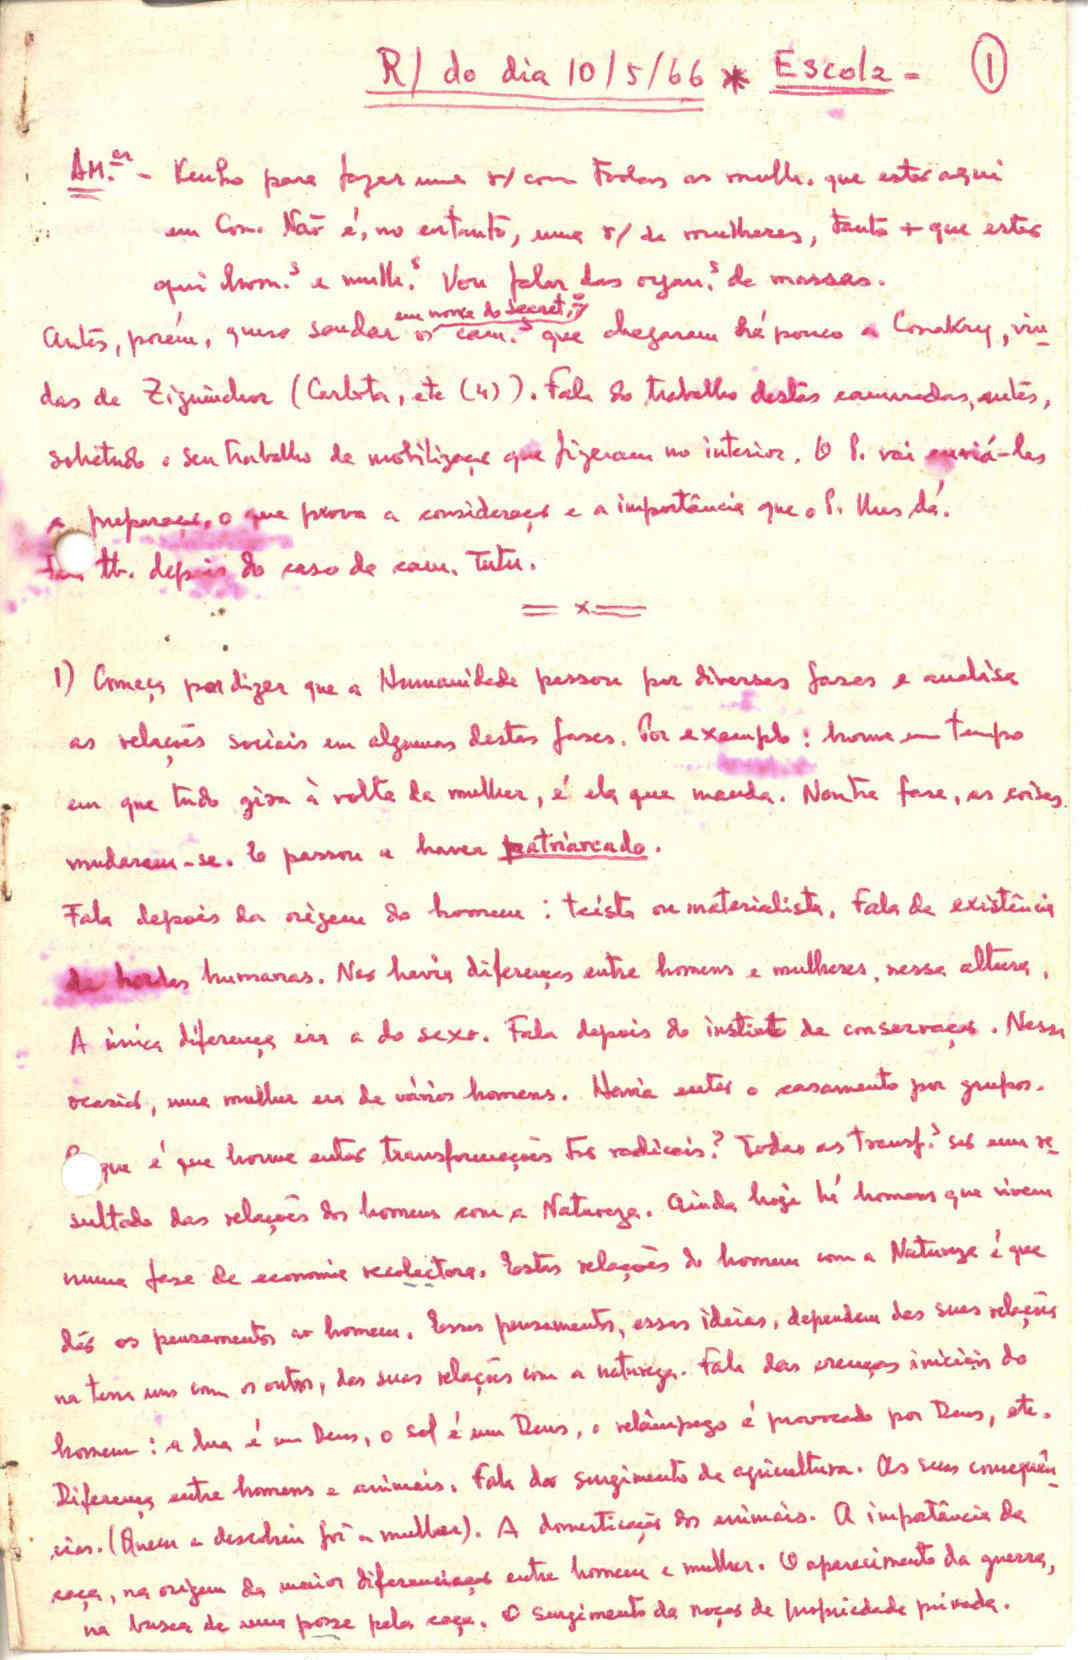 R/ do dia 10/5/66 * Escola = 1
AM.er - Venho para fazer uma r/ com todas as mulh. que estão aqui
em Con. Não é, no entanto, uma r/ de mulheres, tanto + que estão
qui hom.s e mulh.s Vou falar das organ.s de massas.
em nome do Secret.
Antes, porém, quero saudar os cam.s que chegaram há pouco a Conakry, vin-
das de Ziguinchor (Carlota, etc (4)). Fala do trabalho destas camaradas, antes,
sobretudo o seu trabalho de mobilização que fizeram no interior. O P. vai enviá-las
a preparação, o que prova a consideração e a importância que o P. lhes dá.
tb. depois do caso da cam. Tutu.
= x =
1) Começa por dizer que a Humanidade passou por diversas fases e analisa
as relações sociais em algumas destas fases. Por exemplo: houve um tempo
em que tudo gira à volta da mulher, é ela que manda. Noutra fase, as coisas
mudaram-se. E passou a haver patriarcado.
Fala depois da origem do homem: teísta ou materialista. Fala da existência
de hordas humanas. Não havia diferenças entre homens e mulheres, nessa altura.
A única diferença era a do sexo. Fala depois do instinto de conservação. Nessa
ocasião, uma mulher era de vários homens. Havia então o casamento por grupos.
que é que houve então transformações tão radicais? Todas as transf.s são um re-
sultado das relações dos homens com a Natureza. Ainda hoje há homens que vivem
numa fase de economia recolectora. Estas relações do homem com a Natureza é que
dão os pensamentos ao homem. Esses pensamentos, essas ideias, dependem das suas relações
na terra uns com os outros, das suas relações com a natureza. Fala das crenças iniciais do
homem: a lua é um Deus, o sol é um Deus, o relâmpago é provocado por Deus, etc.
Diferença entre homens e animais. Fala do surgimento da agricultura. As suas consequên-
cias. (Quem a descobriu foi a mulher). A domesticação dos animais. A importância da
caça, na origem da maior diferenciação entre homem e mulher. O aparecimento da guerra,
na busca de uma posse pela caça. O surgimento da noção de propriedade privada.